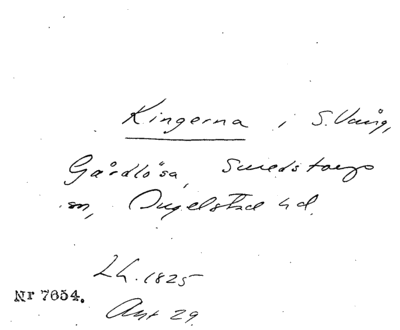 Kingerna i S. Vång,
Gårdlösa, Smedstorps
sn, Ingelstad hd.
L.h. 1825
Nr 7654.
Akt 29